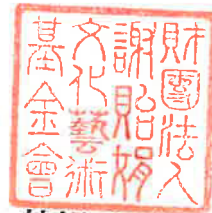 財團法人
謝貽娟
文化藝術
基金會